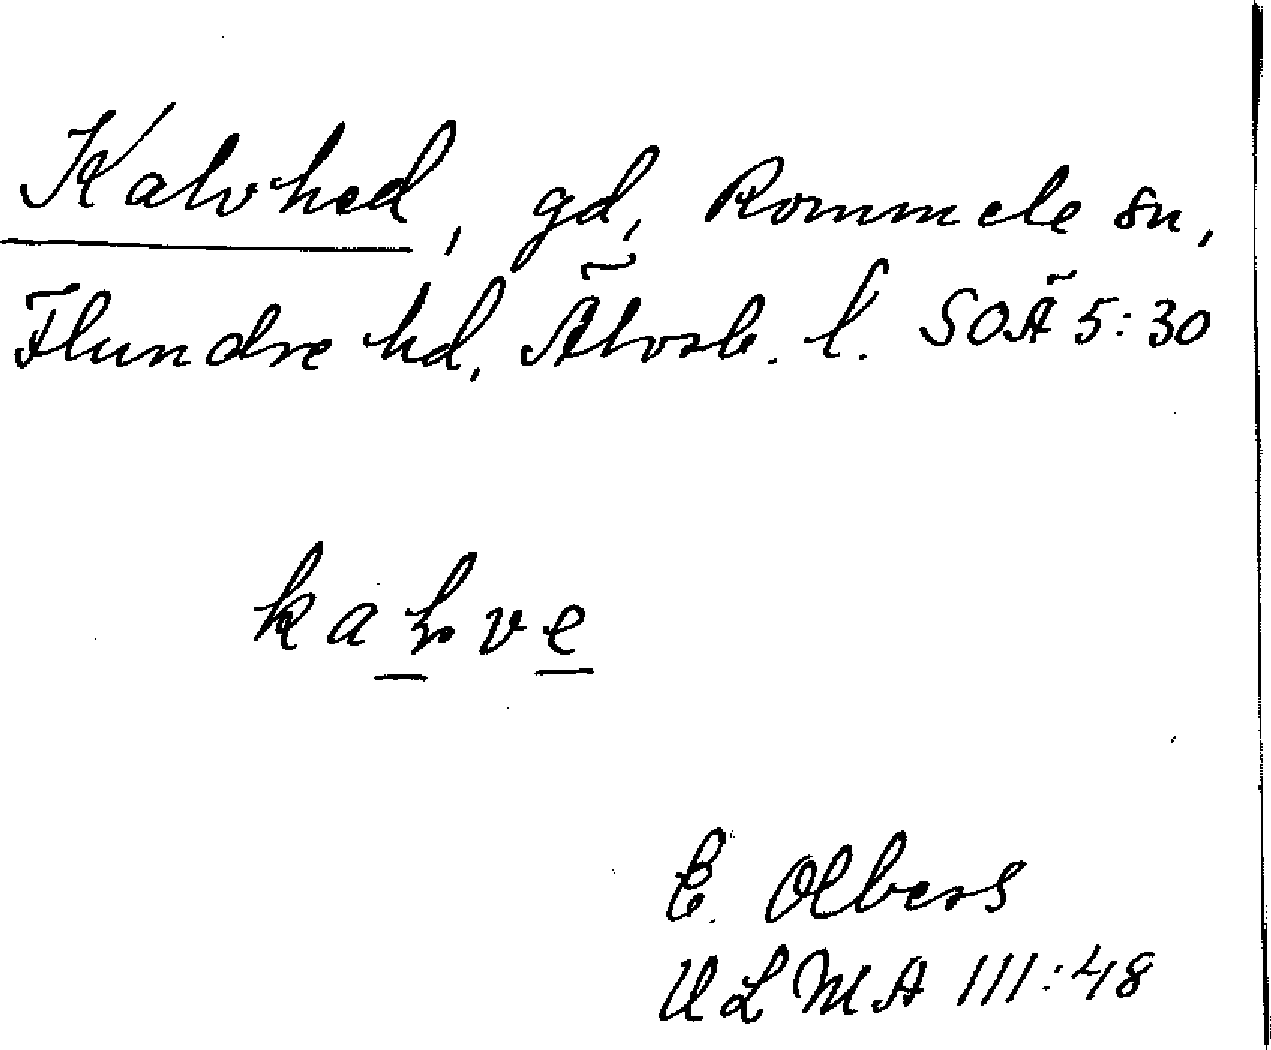 Kalvhed, gd, Rommele sn,
Flundre hd, Älvsb. l. SOÄ 5:30
E. Olbers
ULMA 111:48